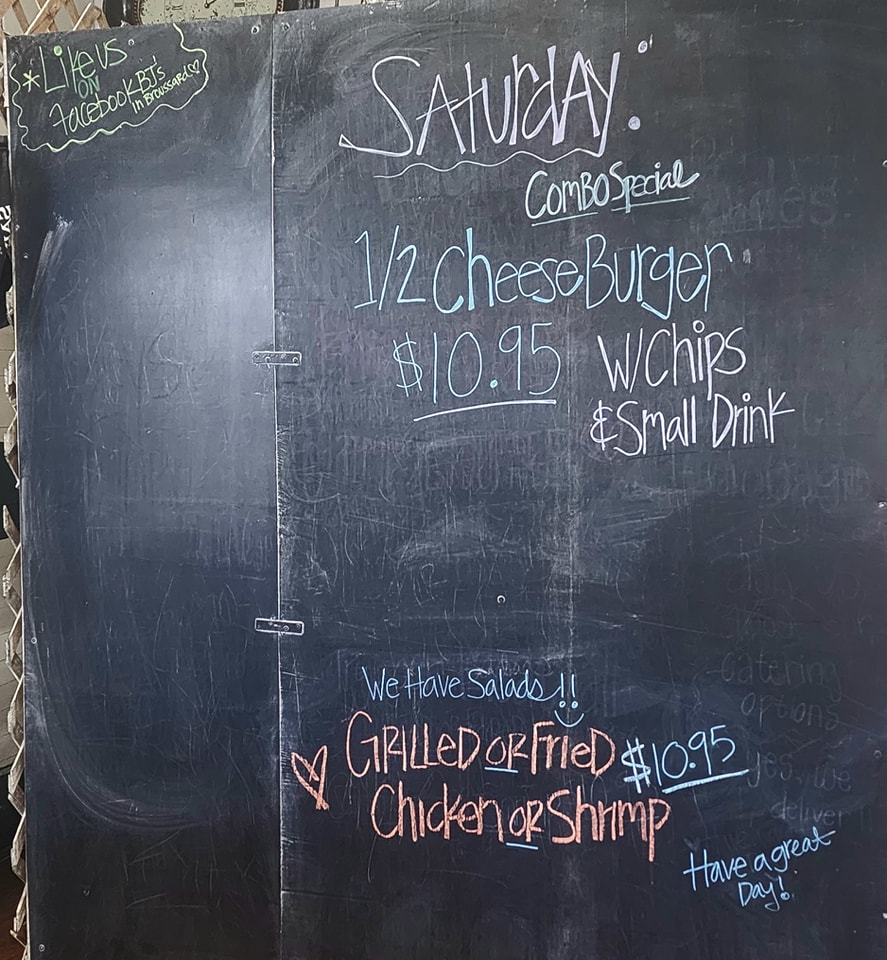 *Like us
on
Facebook BJ's
in Broussard♡
Saturday:
Combo Special
1/2 Cheese Burger
$10.95 W/Chips
& Small Drink
We Have Salads!!
Grilled or Fried $10.95
Chicken or Shrimp
Catering
options
yes, we
deliver
Have a great
Day!